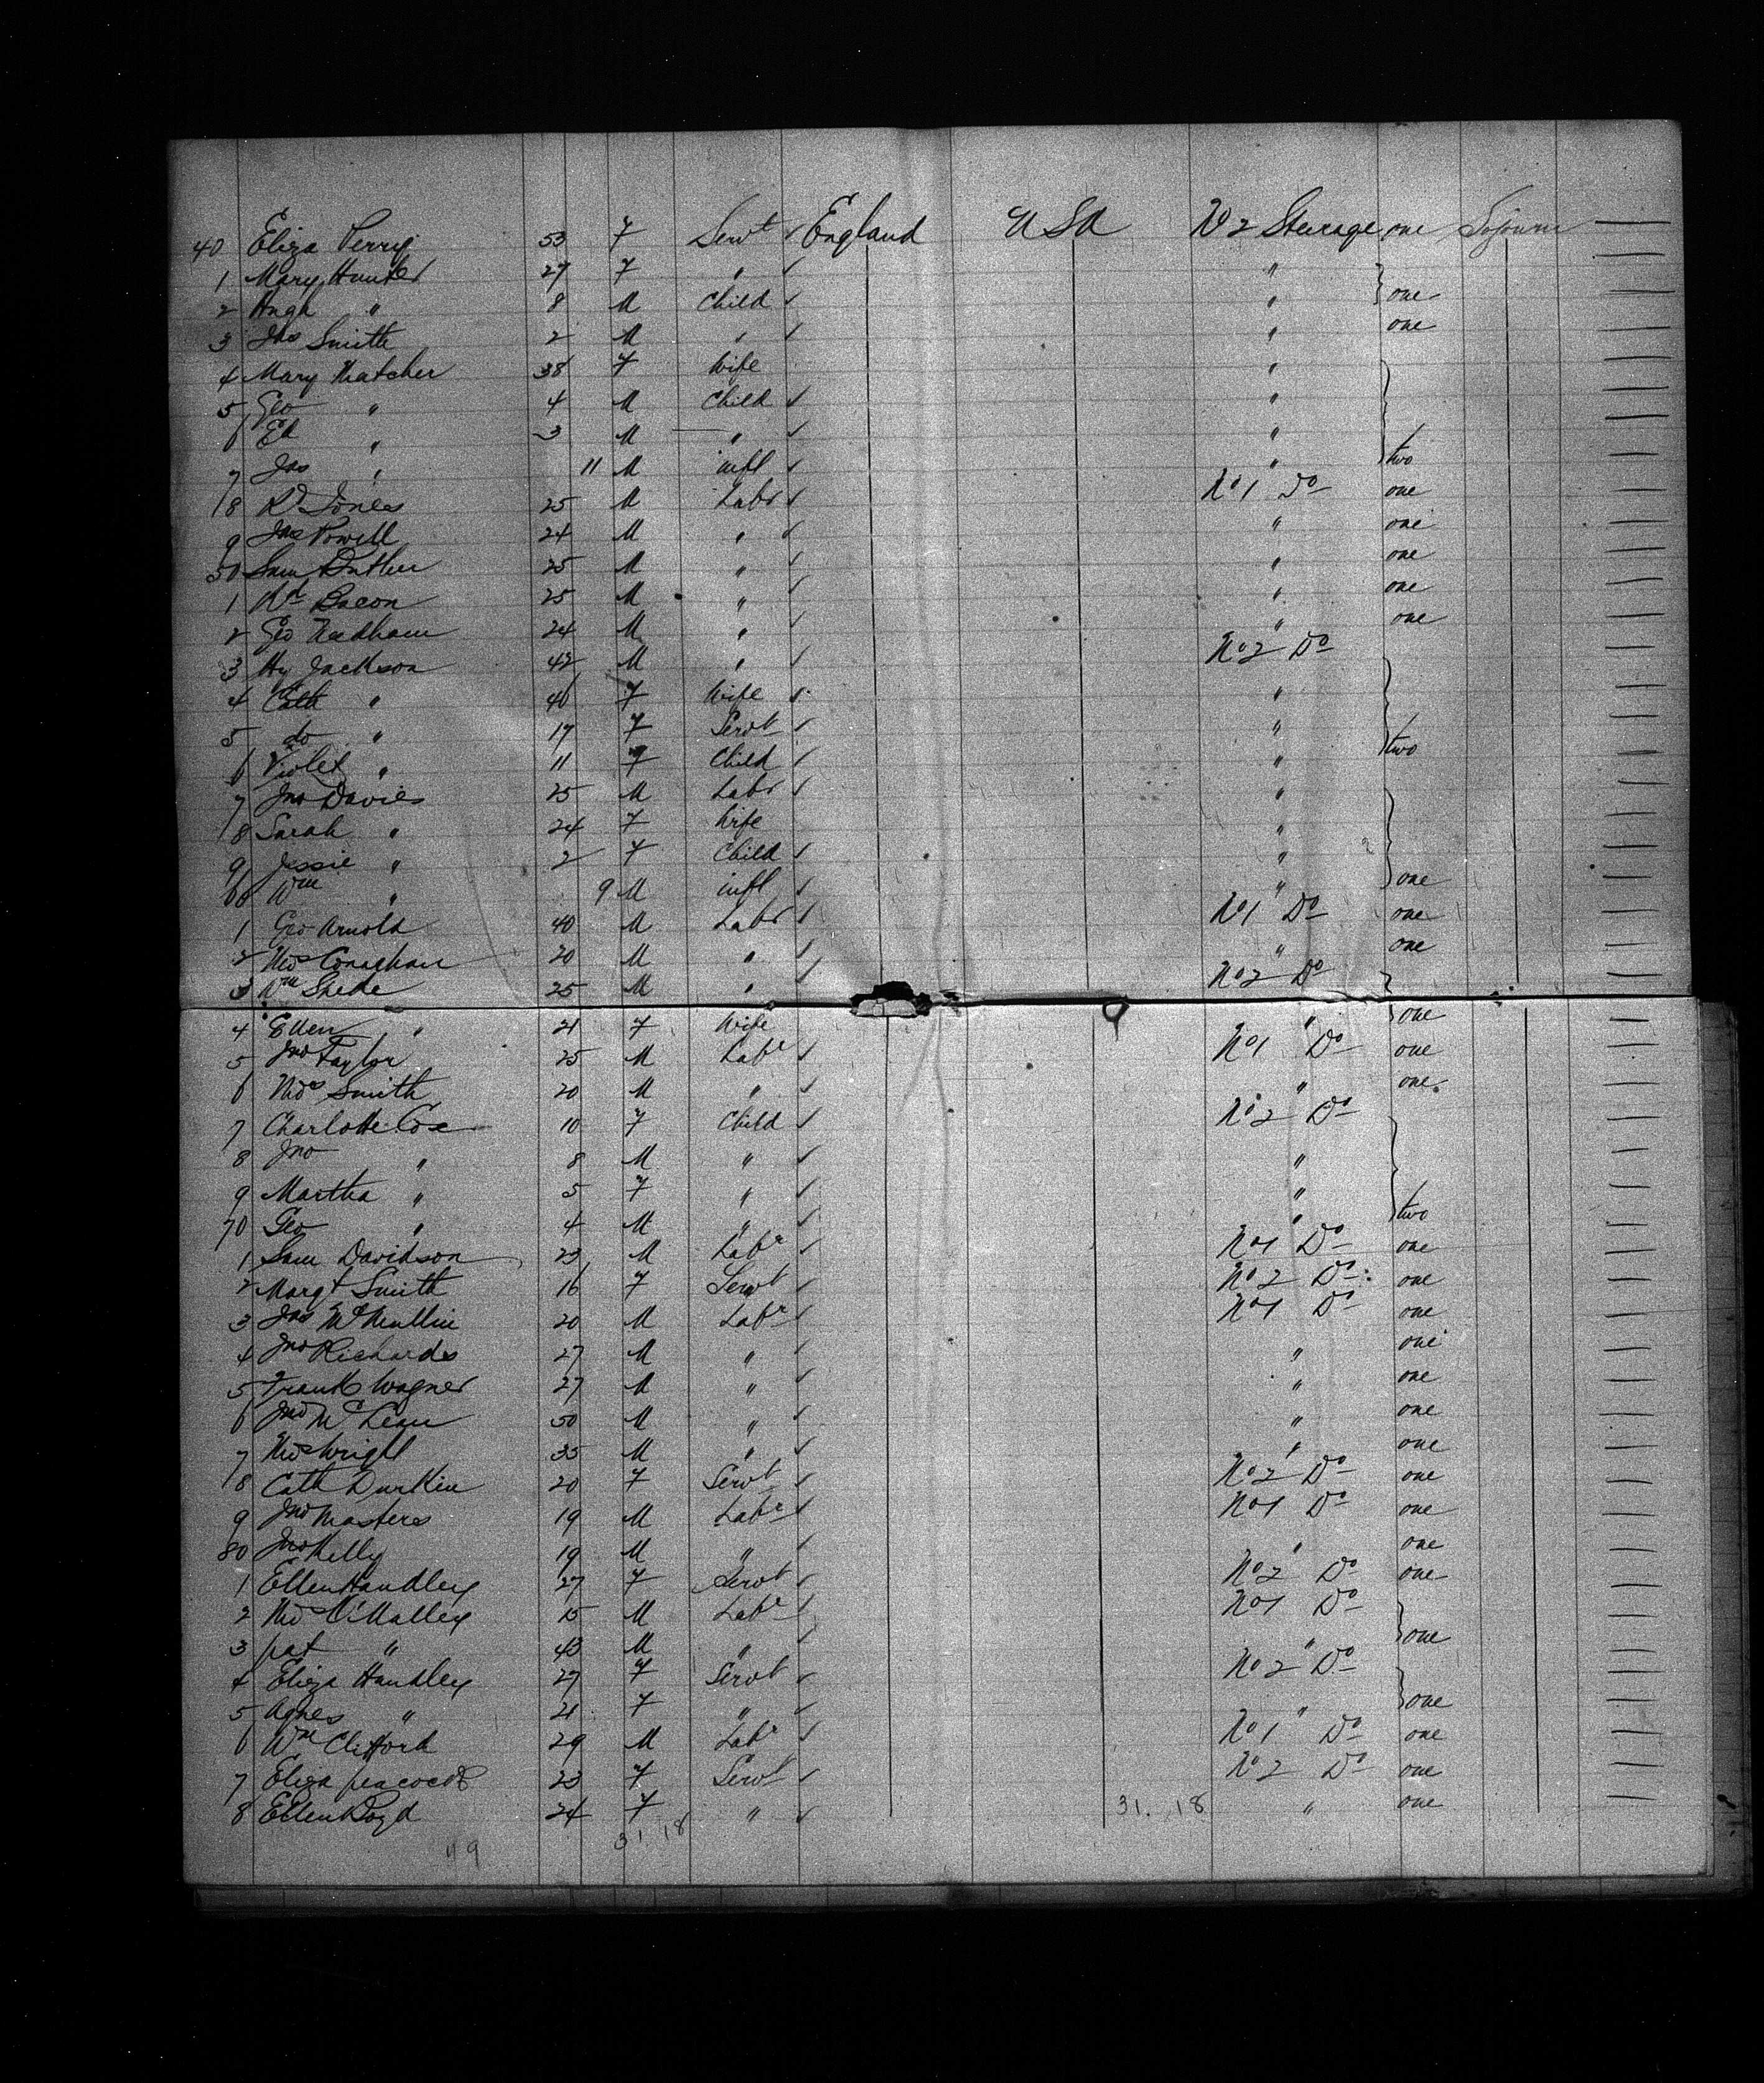 40 Eliza Perry 53 F Servt ✓ England USA No 2 Steerage one Sojourn —
1 Mary Hunter 27 F " ✓ " —
2 Hugh " 8 M Child ✓ " one —
3 Jas Smith 2 M " ✓ " one —
4 Mary Thatcher 38 F Wife " —
5 Geo " 4 M Child ✓ " —
6 Ed " 3 M " ✓ " —
7 Jas " 11 M inft ✓ " two —
8 Rd Jones 25 M Labr ✓ No 1 Do one —
9 Jas Powell 24 M " ✓ " one —
50 Sam 25 M " ✓ " one —
1 Bacon 25 M " ✓ " one —
2 Geo Needham 24 M " ✓ " one —
3 Hy Jackson 42 M " ✓ No 2 Do —
4 Cath " 40 F Wife ✓ " —
5 do " 17 F Servt ✓ " —
6 Violet " 11 F Child ✓ " two —
7 Jno Davies 25 M Labr ✓ " —
8 Sarah " 24 F Wife " —
9 Jessie " 2 F Child ✓ " —
60 Wm " 9 M inft ✓ " one —
1 Geo Arnold 40 M Labr ✓ No 1 Do one —
2 Thos Conaghan 20 M " ✓ " one —
3 Wm 25 M " ✓ No 2 Do —
4 Ellen " 21 F Wife " one —
5 Jno Taylor 25 M Labr ✓ No 1 Do one —
6 Thos Smith 20 M " ✓ " one —
7 Charlotte Cox 10 F Child ✓ No 2 Do —
8 Jno " 8 M " ✓ " —
9 Martha " 5 F " ✓ " —
70 Geo " 4 M " ✓ " two —
1 Sam Davidson 23 M Labr ✓ No 1 Do one —
2 Margt Smith 16 F Servt ✓ No 2 Do one —
3 Jas McMullin 20 M Labr ✓ No 1 Do one —
4 Jno Richards 27 M " ✓ " one —
5 Frank Wagner 27 M " ✓ " one —
6 Jno McLean 50 M " ✓ " one —
7 Thos Wright 35 M " ✓ " one —
8 Cath Durkin 20 F Servt ✓ No 2 Do one —
9 Jno Masters 19 M Labr ✓ No 1 Do one —
80 Jno Kelly 19 M " ✓ " one —
1 Ellen Handley 27 F Servt ✓ No 2 Do one —
2 Thos O'Malley 15 M Labr ✓ No 1 Do —
3 pat " 43 M " ✓ " one —
4 Eliza Handley 27 F Servt ✓ No 2 Do —
5 Agnes " 21 F " ✓ " one —
6 Wm Clifford 29 M Labr ✓ No 1 Do one —
7 Eliza peacock 23 F Servt ✓ No 2 Do one —
8 Ellen Boyd 24 F " ✓ " one —
31. 18
49 31 18